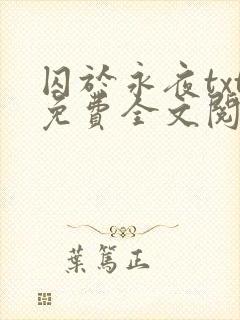 囚於永夜txt
免費全文閱
葉篤正